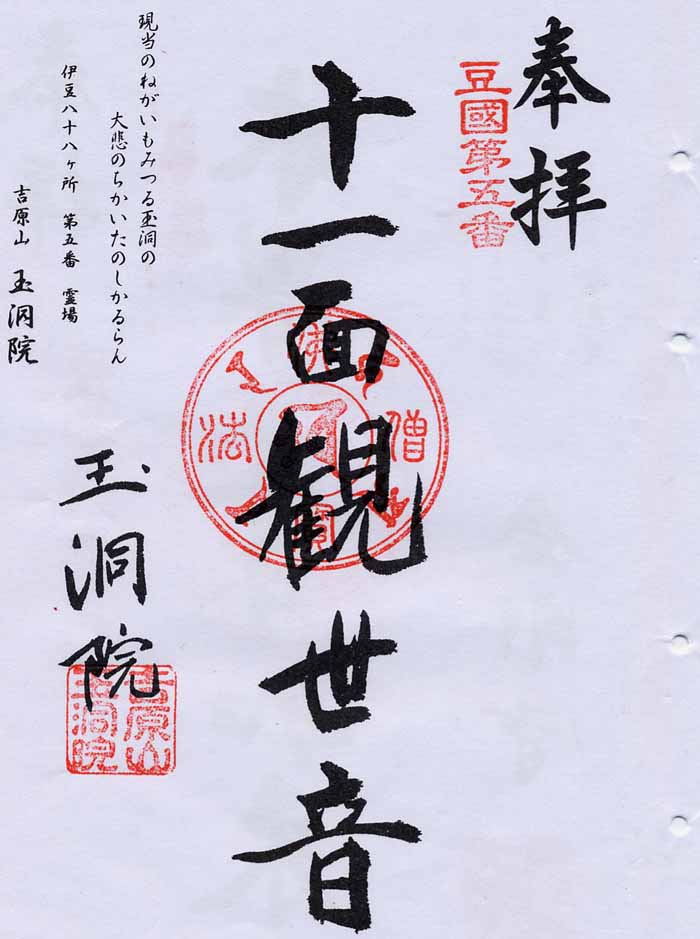 奉拝
豆國第五番
十一面観世音
僧
法
現当のねがいもみつる玉洞の
大悲のちかいたのしかるらん
伊豆八十八ヶ所 第五番 霊場
吉原山 玉洞院
玉洞院
吉原山
玉洞院